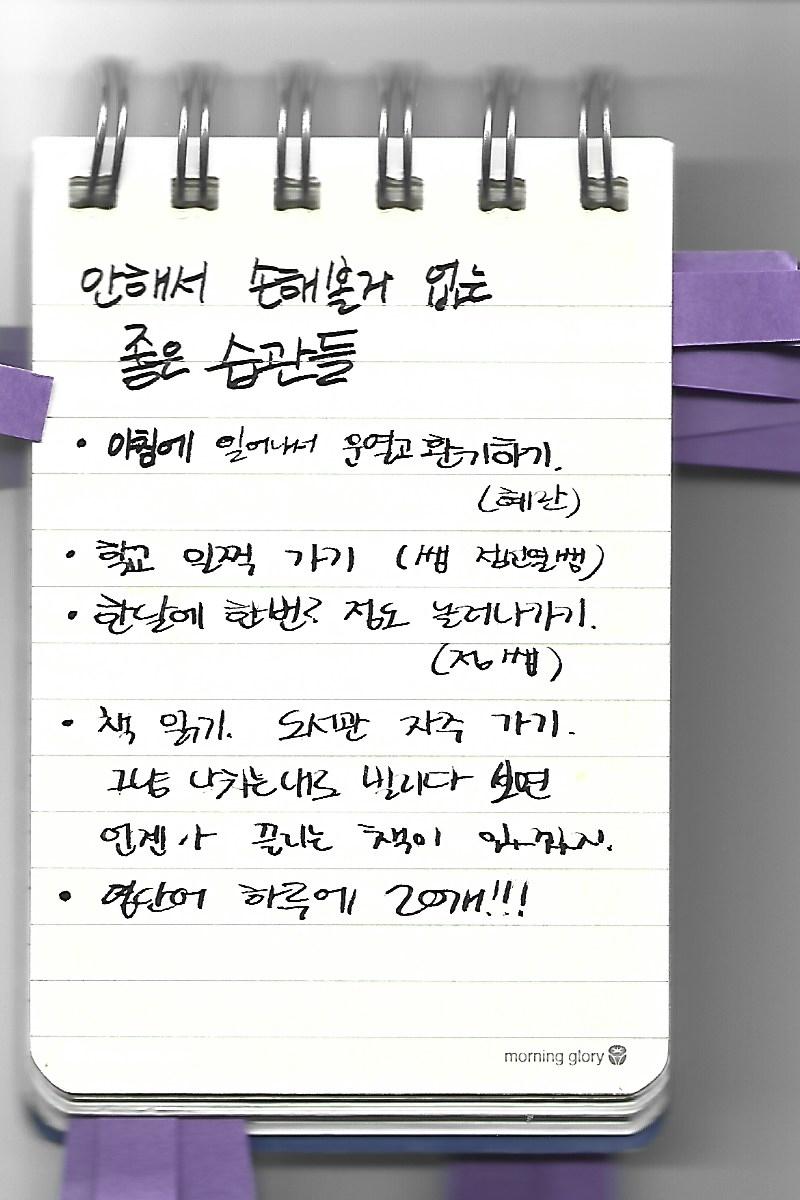 안해서 손해볼거 없는
좋은 습관들
• 아침에 일어나서 문열고 환기하기.
(혜란)
• 학교 일찍 가기 (쌤
• 한달에 한번? 정도 놀러나가기.
• 책 읽기. 도서관 자주 가기.
그냥 나가는대로 빌리다 보면
언젠가 끌리는 책이 있겠지.
• 영단어 하루에 20개!!!
morning glory